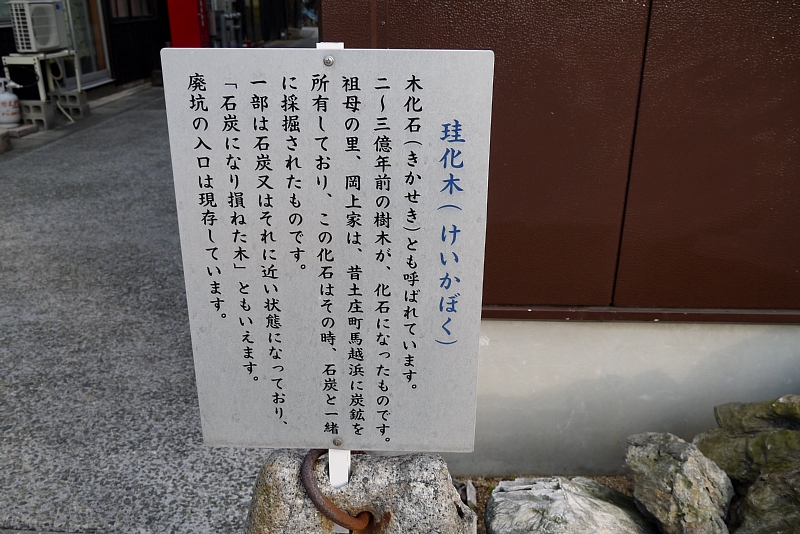 珪化木(けいかぼく)
木化石(きかせき)とも呼ばれています。
二〜三億年前の樹木が、化石になったものです。
祖母の里、岡上家は、昔土庄町馬越浜に炭鉱を
所有しており、この化石はその時、石炭と一緒
に採掘されたものです。
一部は石炭又はそれに近い状態になっており、
「石炭になり損ねた木」ともいえます。
廃坑の入口は現存しています。